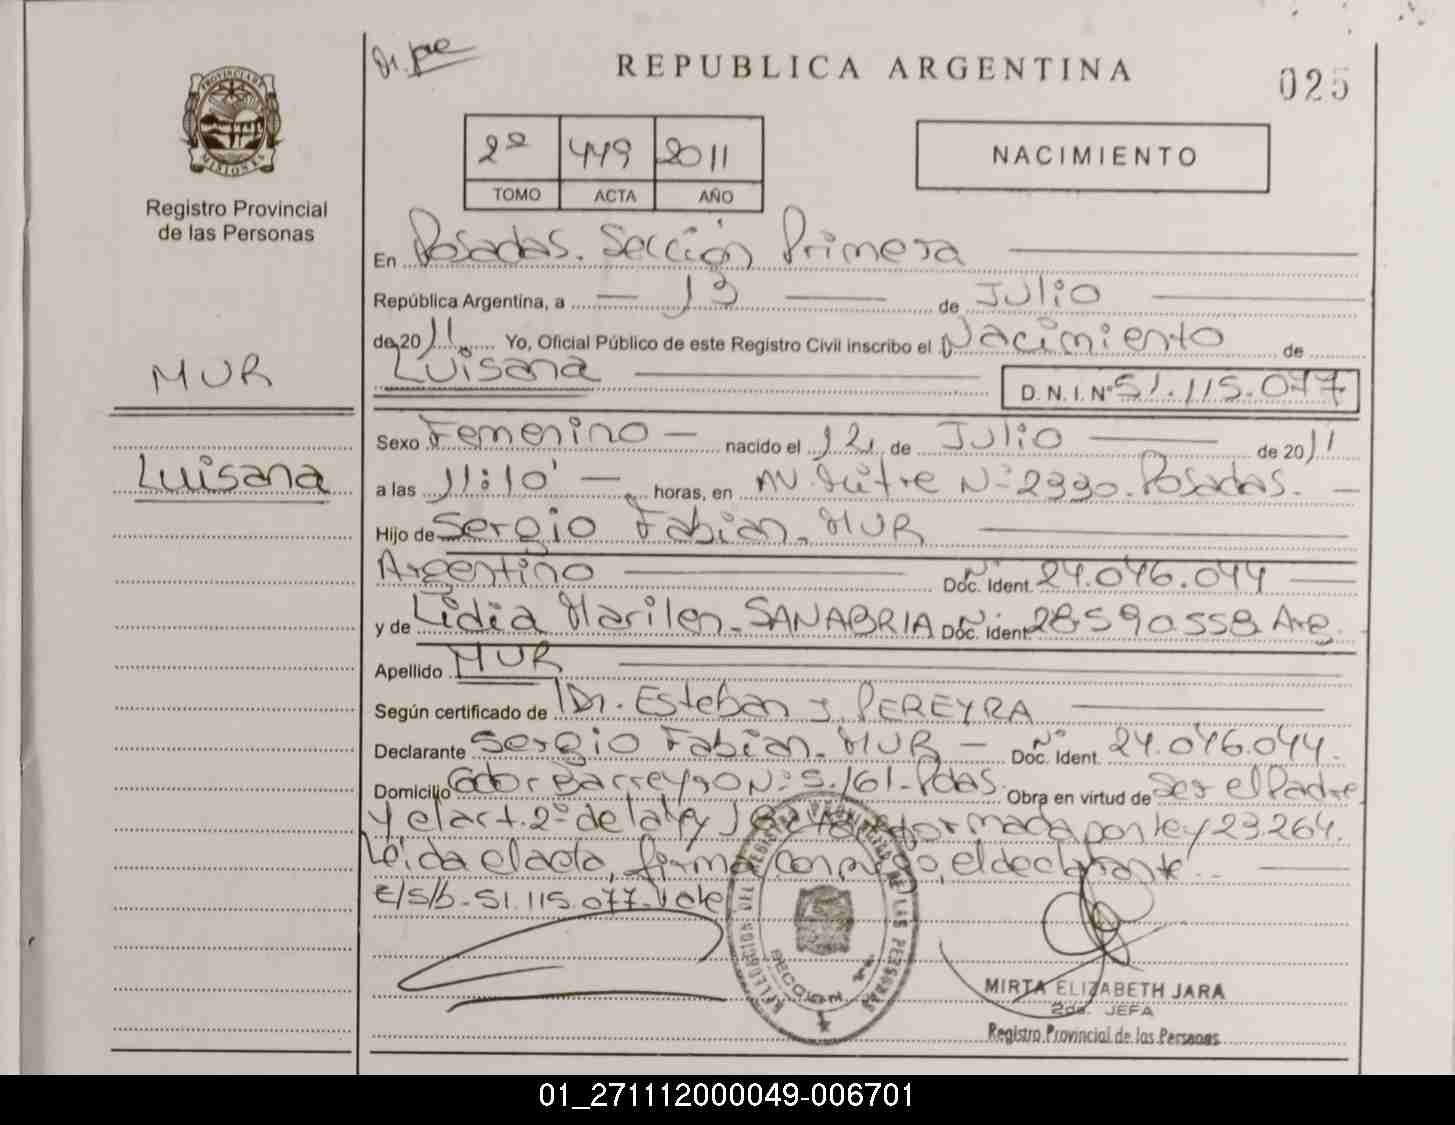 REPUBLICA ARGENTINA
025
PROVINCIA DE MISIONES
Registro Provincial
de las Personas
2º 449 2011
TOMO ACTA AÑO
NACIMIENTO
En Posadas. Sección Primera
República Argentina, a 13 de Julio
de 2011. Yo, Oficial Público de este Registro Civil inscribo el Nacimiento de
Luisana
D. N. I. Nº 51.115.077
MUR
Luisana
Sexo Femenino nacido el 12 de Julio de 2011
a las 11:10' horas, en AV. Mitre Nº 2330. Posadas.
Hijo de Sergio Fabian. MUR
Argentino Nº Doc. Ident. 24.046.044
y de Lidia Marilen. SANABRIA Nº Doc. Ident 28.590.558. Arg.
Apellido MUR
Según certificado de Dr. Esteban J. PEREYRA
Declarante Sergio Fabian. MUR Nº Doc. Ident. 24.046.044.
Domicilio Gdor Barreyro Nº 5.161. Pdas. Obra en virtud de Ser el Padre
y el art. 2º de la ley por ley 23.264.
Leida el acta, firma conmigo, el declarante.
E/S/b. 51.115.077. Vale
REGISTRO PROVINCIAL DE LAS PERSONAS
SECCION 1ª
MIRTA ELIZABETH JARA
2da. JEFA
Registro Provincial de las Personas
01_271112000049-006701